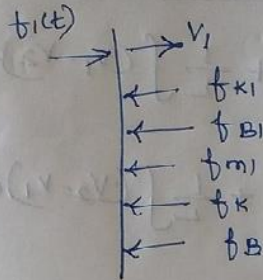 f1(t)
V1
fK1
fB1
fm1
fK
fB